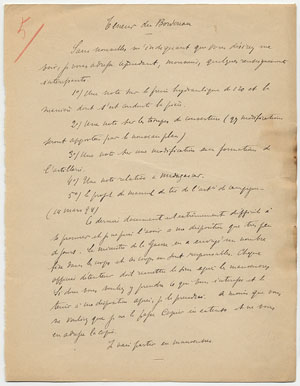 5
Teneur du Bordereau
Sans nouvelles m'indiquant que vous désirez me
voir, je vous adresse cependant, monsieur, quelques renseignements
intéressants
1º) Une note sur le frein hydraulique de 120 et la
manière dont s'est conduite la pièce.
2º) Une note sur les troupes de couverture (qq modifications
seront apportées par le nouveau plan)
3º) Une note sur une modification aux formations de
l'artillerie.
4º) Une note relative à Madagascar.
5º) le projet de manuel de tir de l'artie de campagne
(14 mars 94)
Ce dernier document est extrêmement difficile à
se procurer et je ne puis l'avoir à ma disposition que très peu
de jours. Le ministre de la Guerre en a envoyé un nombre
fixe dans les corps et ces corps en sont responsables. Chaque
officier détenteur doit remettre le sien après les manœuvres
Si donc vous voulez y prendre ce qui vous intéresse et le
tenir à ma disposition après, je le prendrai. à moins que vous
ne vouliez que je le fasse copier in extenso et ne vous
en adresse la copie.
Je vais partir en manœuvres